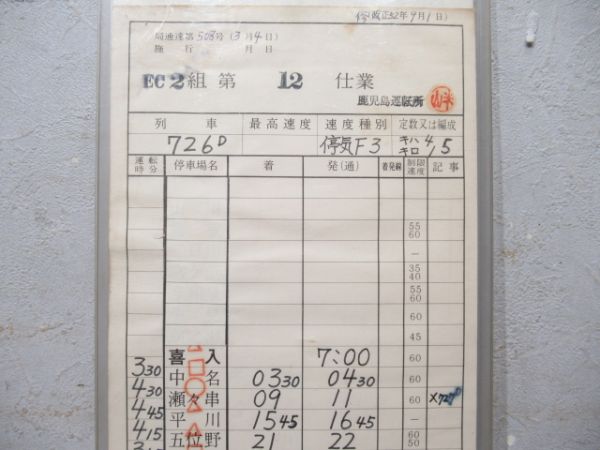 改正52年9月1日)
局運達第508号 (3月4日)
施行 月 日
EC2組 第 12 仕業
鹿児島運転所
列車 最高速度 速度種別 定数又は編成
726D 停気F3 キハ キロ 4/5
運転時分 停車場名 着 発(通) 着発線 制限速度 記事
55
60
—
35
40
55
60
60
45
喜入 7:00 60
3 30
中名 03 30 04 30 60
4 30
瀬々串 09 11 60 ×727
4 45
平川 15 45 16 45
4 15
五位野 21 22 60 50